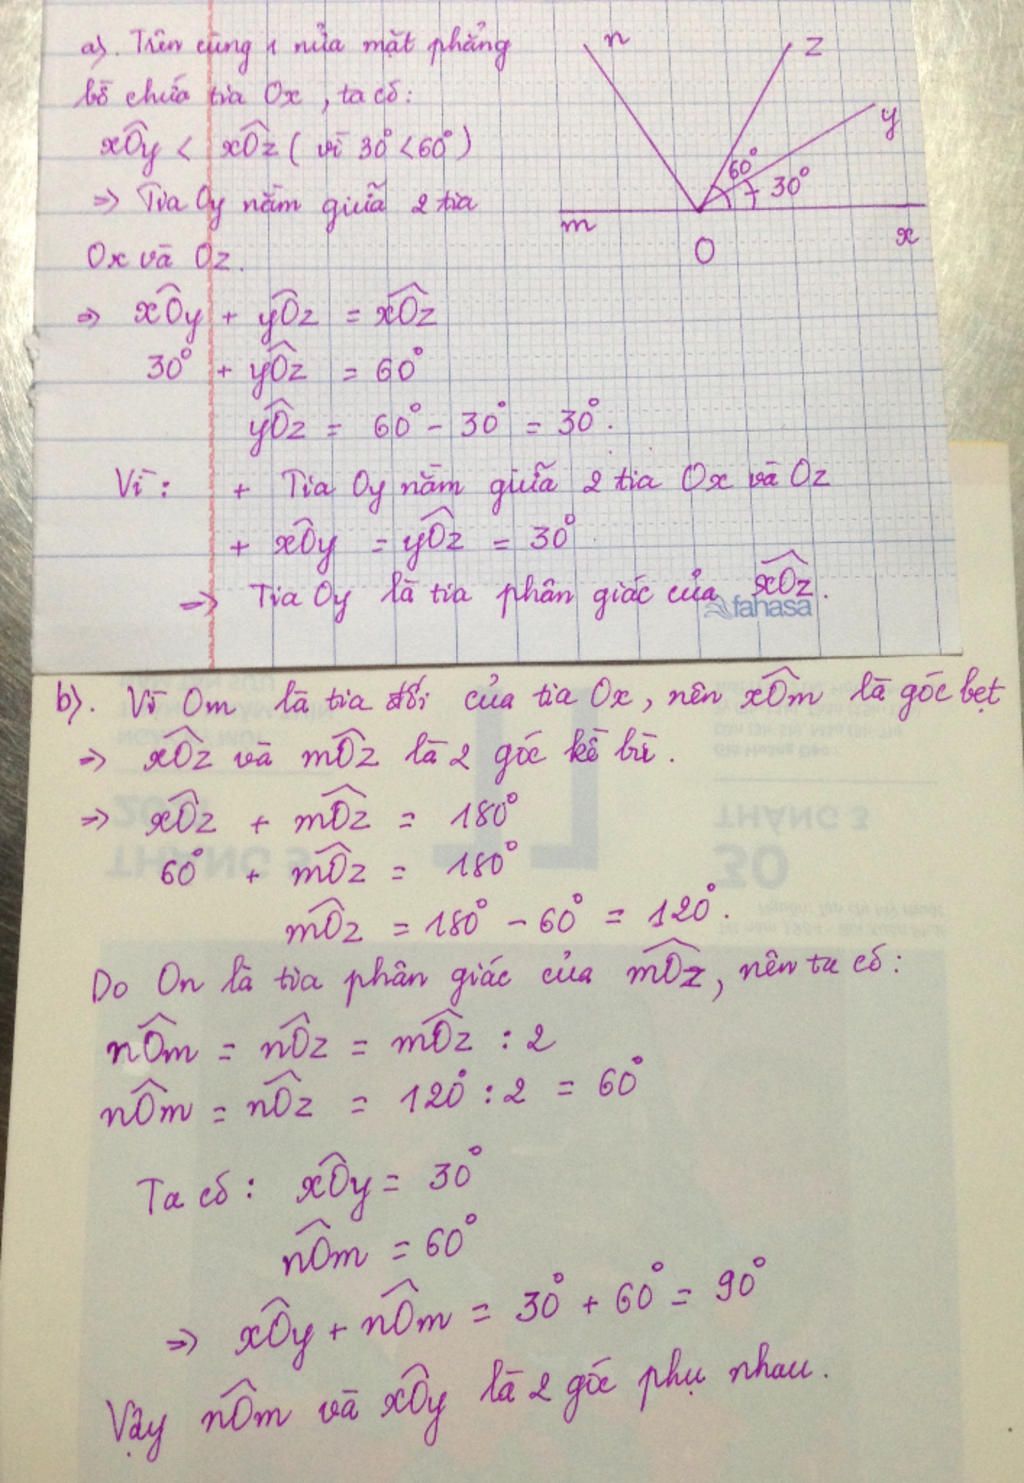 a). Trên cùng 1 nửa mặt phẳng
bờ chứa tia Ox, ta có:
xÔy < xÔz ( vì 30° < 60° )
=> Tia Oy nằm giữa 2 tia
Ox và Oz.
=> xÔy + yÔz = xÔz
30° + yÔz = 60°
yÔz = 60° - 30° = 30°.
Vì: + Tia Oy nằm giữa 2 tia Ox và Oz
+ xÔy = yÔz = 30°
=> Tia Oy là tia phân giác của xÔz.
fahasa
n
z
y
60°
30°
m
O
x
b). Vì Om là tia đối của tia Ox, nên xÔm là góc bẹt
=> xÔz và mÔz là 2 góc kề bù.
=> xÔz + mÔz = 180°
60° + mÔz = 180°
mÔz = 180° - 60° = 120°.
Do On là tia phân giác của mÔz, nên ta có:
nÔm = nÔz = mÔz : 2
nÔm = nÔz = 120° : 2 = 60°
Ta có: xÔy = 30°
nÔm = 60°
=> xÔy + nÔm = 30° + 60° = 90°
Vậy nÔm và xÔy là 2 góc phụ nhau.
THÁNG 3
30